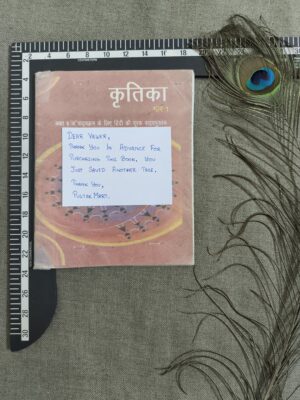 2 4 6 8 10 12 14 16 18 20 22 24 26 28
CENTIMETER
कृतिका
भाग-1
कक्षा 9 'अ' पाठ्यक्रम के लिए हिंदी की पूरक पाठ्यपुस्तक
DEAR VIEWER,
THANK YOU IN ADVANCE FOR
PURCHASING THIS BOOK. YOU
JUST SAVED ANOTHER TREE.
THANK YOU,
PUSTAKMART.